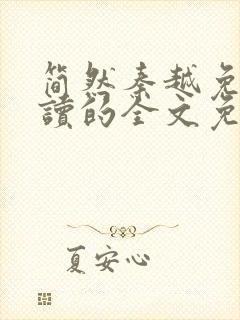 简然秦越免
讀的全文免
夏安心